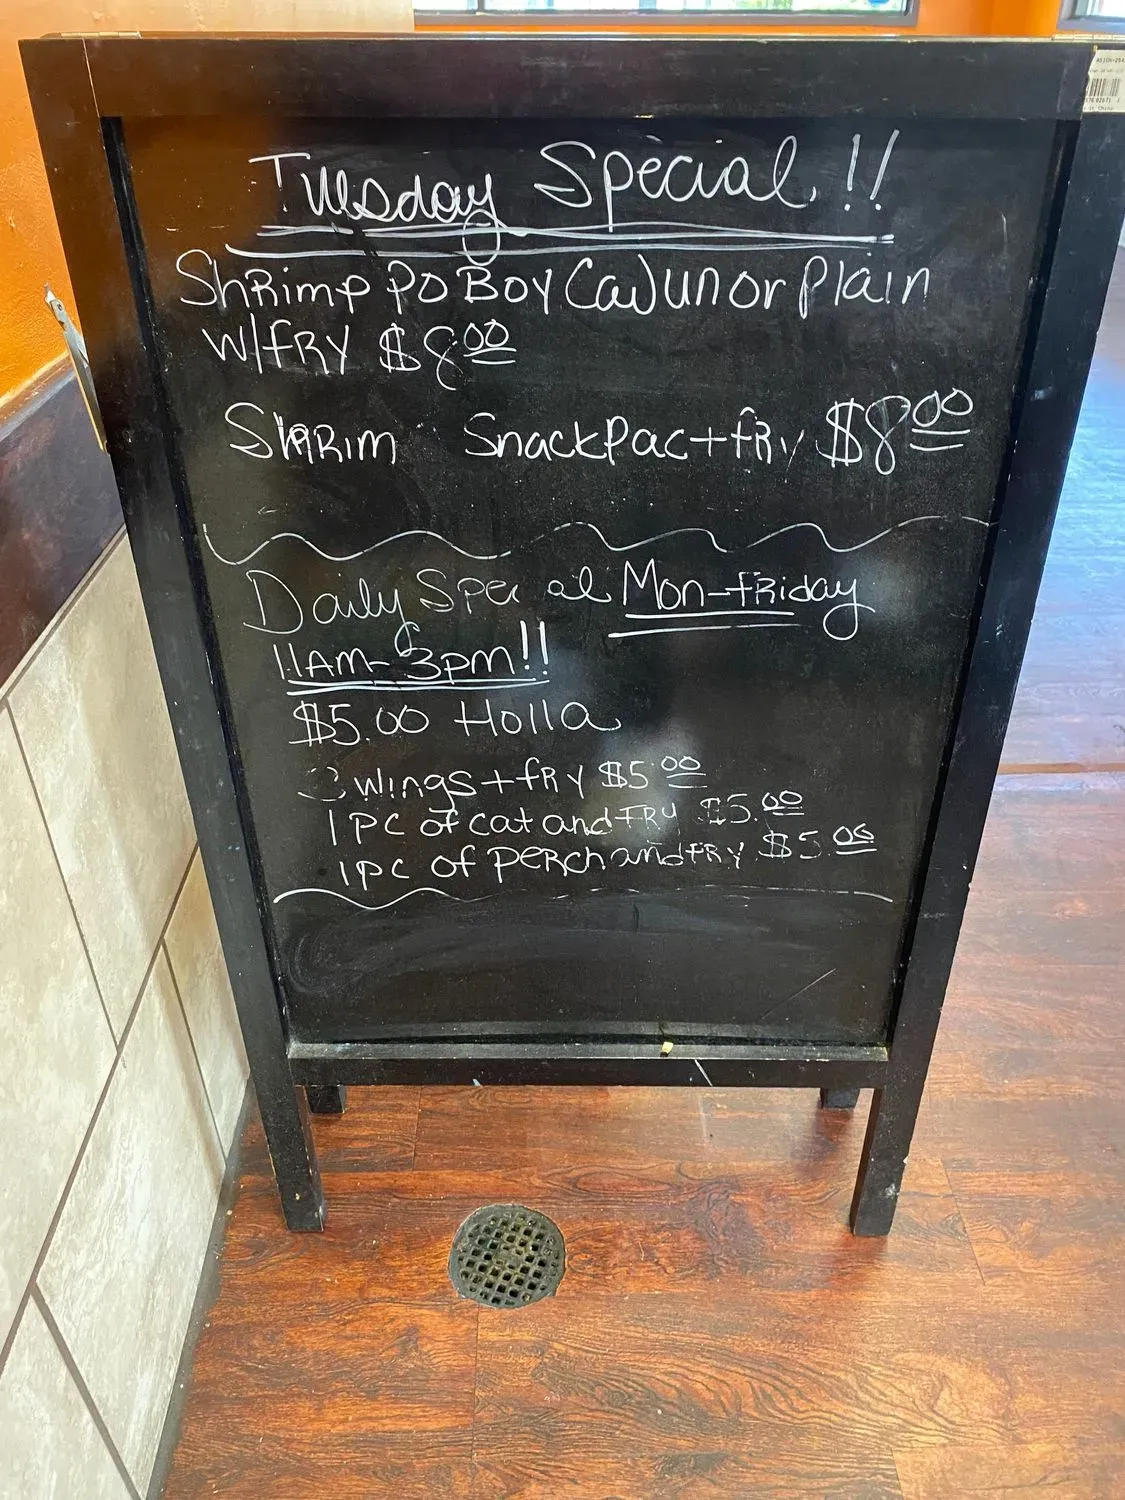 Tuesday Special!!
Shrimp PO BOY Cajun or Plain
W/FRY $8.00
Shrim Snack Pac + fry $8.00
Daily Special Mon-friday
11AM-3pm!!
$5.00 Holla
wings + fry $5.00
1 PC of cat and FRY $5.00
1 PC of PERCh and FRY $5.00